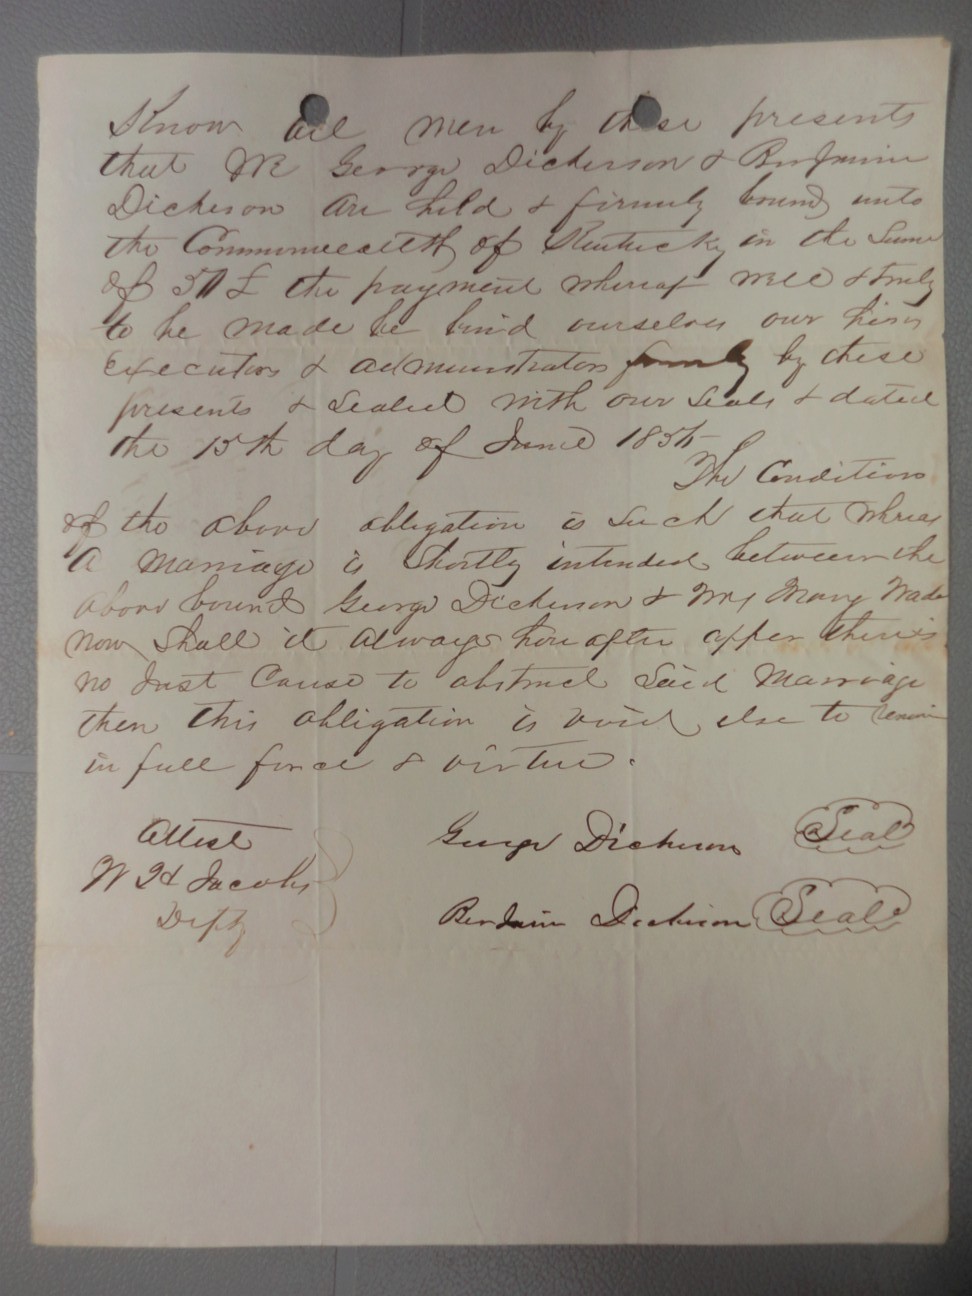 Know all men by these presents
that We George Dickerson & Benjamin
Dickerson are held & firmly bound unto
the Commonwealth of Kentucky in the Sum
of 50 £ the payment whereof well & truly
to be made be bind ourselves our hirs
executors & administrators firmly by these
presents & Sealed with our Seals & dated
the 15th day of June 185
The Condition
of the above obligation is Such that whereas
A Marriage is Shortly intended between the
above bound George Dickerson & Mrs Mary Wade
now Shall it always hereafter apper there is
no Just Cause to abstruct Said Marriage
then this obligation is void else to remain
in full force & virtue.
Attest
George Dickerson Seal
W H Jacobs
Depty
Benjamin Dickerson Seal